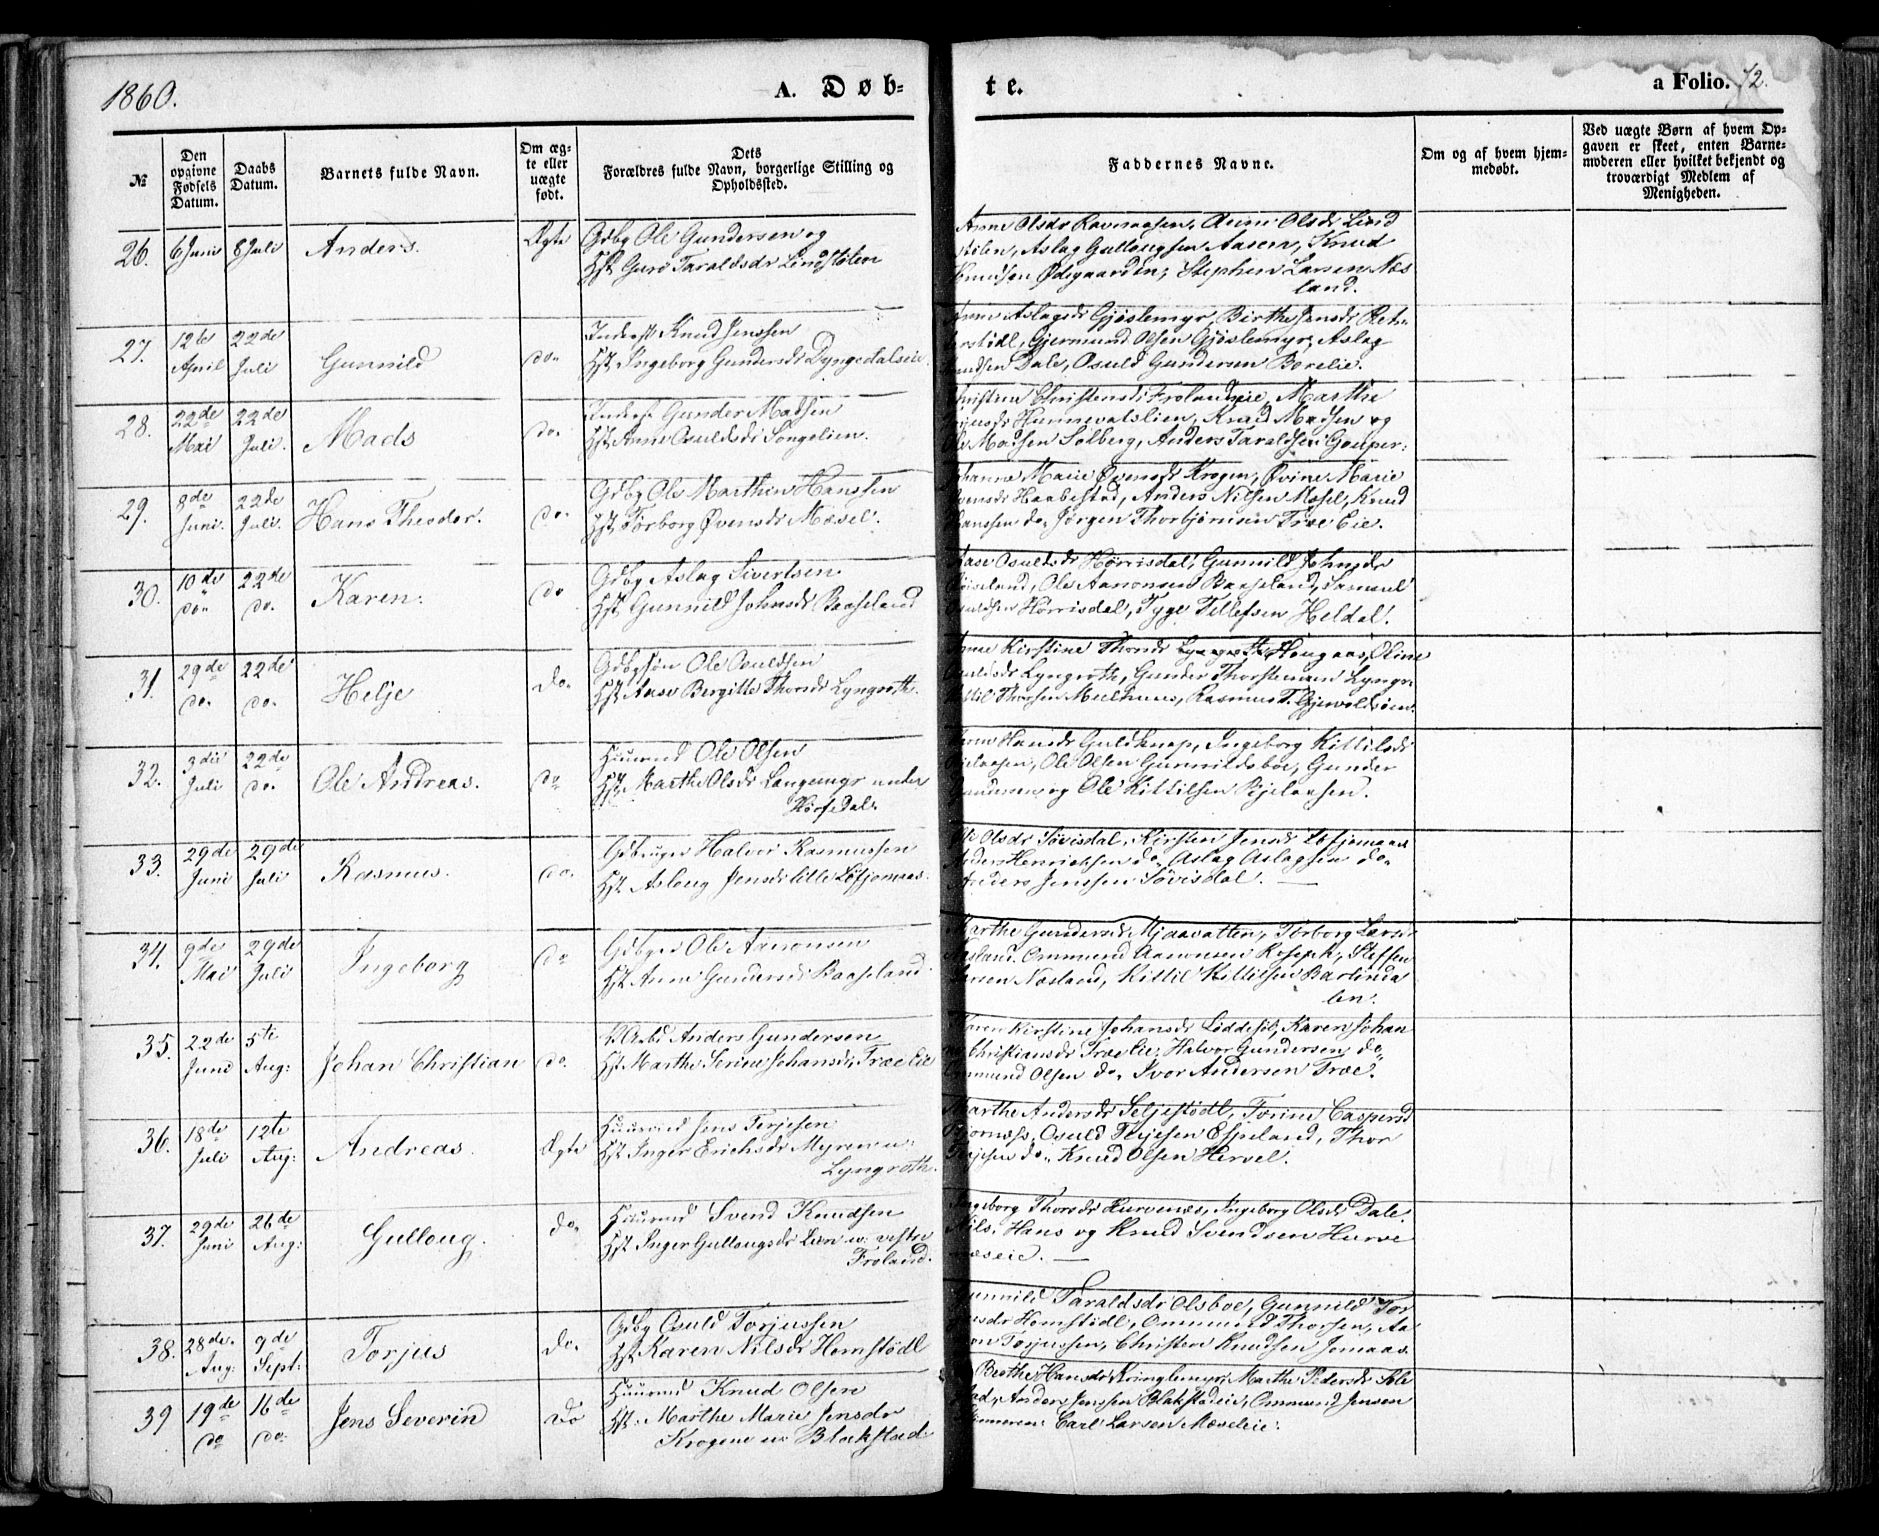 1860.
A. Døb-
te.
a Folio. 72.
№
Den opgivne Fødsels Datum.
Daabs Datum.
Barnets fulde Navn.
Om ægte eller uægte født.
Dets
Forældres fulde Navn, borgerlige Stilling og
Opholdssted.
Faddernes Navne.
Om og af hvem hjem-
medøbt.
Ved uægte Børn af hvem Op-
gaven er skeet, enten Barne-
moderen eller hvilket bekjendt og
troværdigt Medlem af
Menigheden.
26. 6 Juni 8 Juli Anders. Ægte Gdbg Ole Gundersen og
Hst Guro Taraldsdr Lindstølen
Anne Olsdr Ravnaasen, Anne Olsdr Lind
stølen, Aslag Gullougsen Aasen, Knud
Knudsen Ødegaarden, Stephen Larsen Næs
land.
27. 12te April 22de Juli Gunnild do. Inderst Knud Jenssen
Hst. Ingeborg Gundersdr Dyngedalseie.
Aslagsdr Gjøslemyr, Birthe Jensdr
Gjermund Olsen Gjøslemyr, Aslag
Dale, Osuld Gundersen Borelie.
28. 22de Mai 22de Juli. Mads do. Inderst Gunder Madsen
Hst Anne Osuldsdr Songelien.
Christensdr Frolandseie, Marthe
Hunnevatslien, Knud Madsen og
Ole Madsen Solberg, Anders Taraldsen
29. 8de Juni. 22de Juli. Hans Theodor. do. Gdbg Ole Marthin Hanssen
Hst. Torborg Øvensdr Mæsel.
Johanne Marie Øvensdr Krogen, Øvine Marie
Øvensdr Haabestad, Anders Nilsen Mæsel, Knud
Hanssen do. Jørgen Thorbjørnsen Træ Eie.
30. 10de do. 22de do. Karen. do Gdbg Aslag Sivertsen
Hst Gunnild Johnsdr Baaseland
Aase Osuldsdr Hørrisdal, Gunnild Johnsdr
Ole Aanonsen Baaseland, Samuel
Osuldsen Hørrisdal, Tyge Tellefsen Heldal.
31. 29de do. 22de do. Helje do. Gdbgsøn Ole Osuldsen
Hst Aase Bergitte Thorsdr Lyngroth.
Anne Kirstine Thorsdr Haugaas, Oline
Osuldsdr Lyngroth, Gunder Thorstensen Lyngr.
Kittil Thorsen Mielhuus, Rasmus T. Gjevoldsøen.
32. 3die Juli 22de do. Ole Andreas. do Huusmd Ole Olsen
Hst Marthe Olsdr Langemyr under
Hørsdal.
Hansdr Guldknap, Ingeborg Kittilsdr
Bjelaasen, Ole Olsen Gunnildsboe, Gunder
Gundersen og Ole Kittilsen Bjelaasen.
33. 29de Juni 29de Juli Rasmus. do. Gdbruger Halvor Rasmussen
Hst. Aslaug Jensdr lille Løfsjomaas.
Olsdr Søvisdal, Kirsten Jensdr Løfsjomaas
Anders Henriksen do. Aslag Aslagsen do.
Anders Jenssen Søvisdal.
34. 9de Mai 29de Juli Ingeborg do Gdbger Ole Aanonsen
Hst Anne Gundersdr Baaseland.
Marthe Gundersdr Mjaavatten, Torborg Larsdr
Næsland. Ommund Aanonsen Roseph, Steffen
Larsen Næsland, Kittil Kittilsen Barlinda
len.
35. 22de Juni 5ti Aug: Johan Christian do. Anders Gundersen
Hst Marthe Serine Johansdr, Træ Eie
Karen Kirstine Johansdr Løddesøl, Karen Johan
ne Christiansdr Træ Eie, Halvor Gundersen do.
Ommund Olsen do. Ivor Andersen Træ.
36. 18de Juli 12te Aug: Andreas. Ægte Huusmd Jens Terjesen
Hst Inger Erichsdr Myren u:
Lyngroth.
Marthe Andersdr Seljestødl, Torine Caspersd
Bjornæs. Osuld Terjesen Espeland, Thor
Terjesen do. Knud Olsen Hersel.
37. 29de Juni 26de Aug: Gulloug. do. Huusmd Svend Knudsen
Hst Inger Gullougsdr Lien u: vestre
Froland.
Ingeborg Thorsdr Hurvenæs, Ingeborg Olsdr Dale.
Nils, Hans og Knud Svendsen Hurve
næseie.
38. 28de Aug: 9de Sept: Torjus do. Gdbg Osuld Torjussen
Hst Karen Nilsdr Hornstødl
Gunnild Taraldsdr Olsboe, Gunnild Tor
jusdr Hornstødl, Ommund Thorsen, Aa
non Torjussen, Christen Knudsen Jomaas.
39 19de do 16de do. Jens Severin do Huusmd Knud Olsen
Hst. Marthe Marie Jensdr
Krogene u: Blakstad.
Berthe Hansdr Kringlemyr, Marthe Pedersdr Sole
stad, Anders Jenssen Blakstadeie, Ommund Jensen
Carl Larsen Mæseleie.